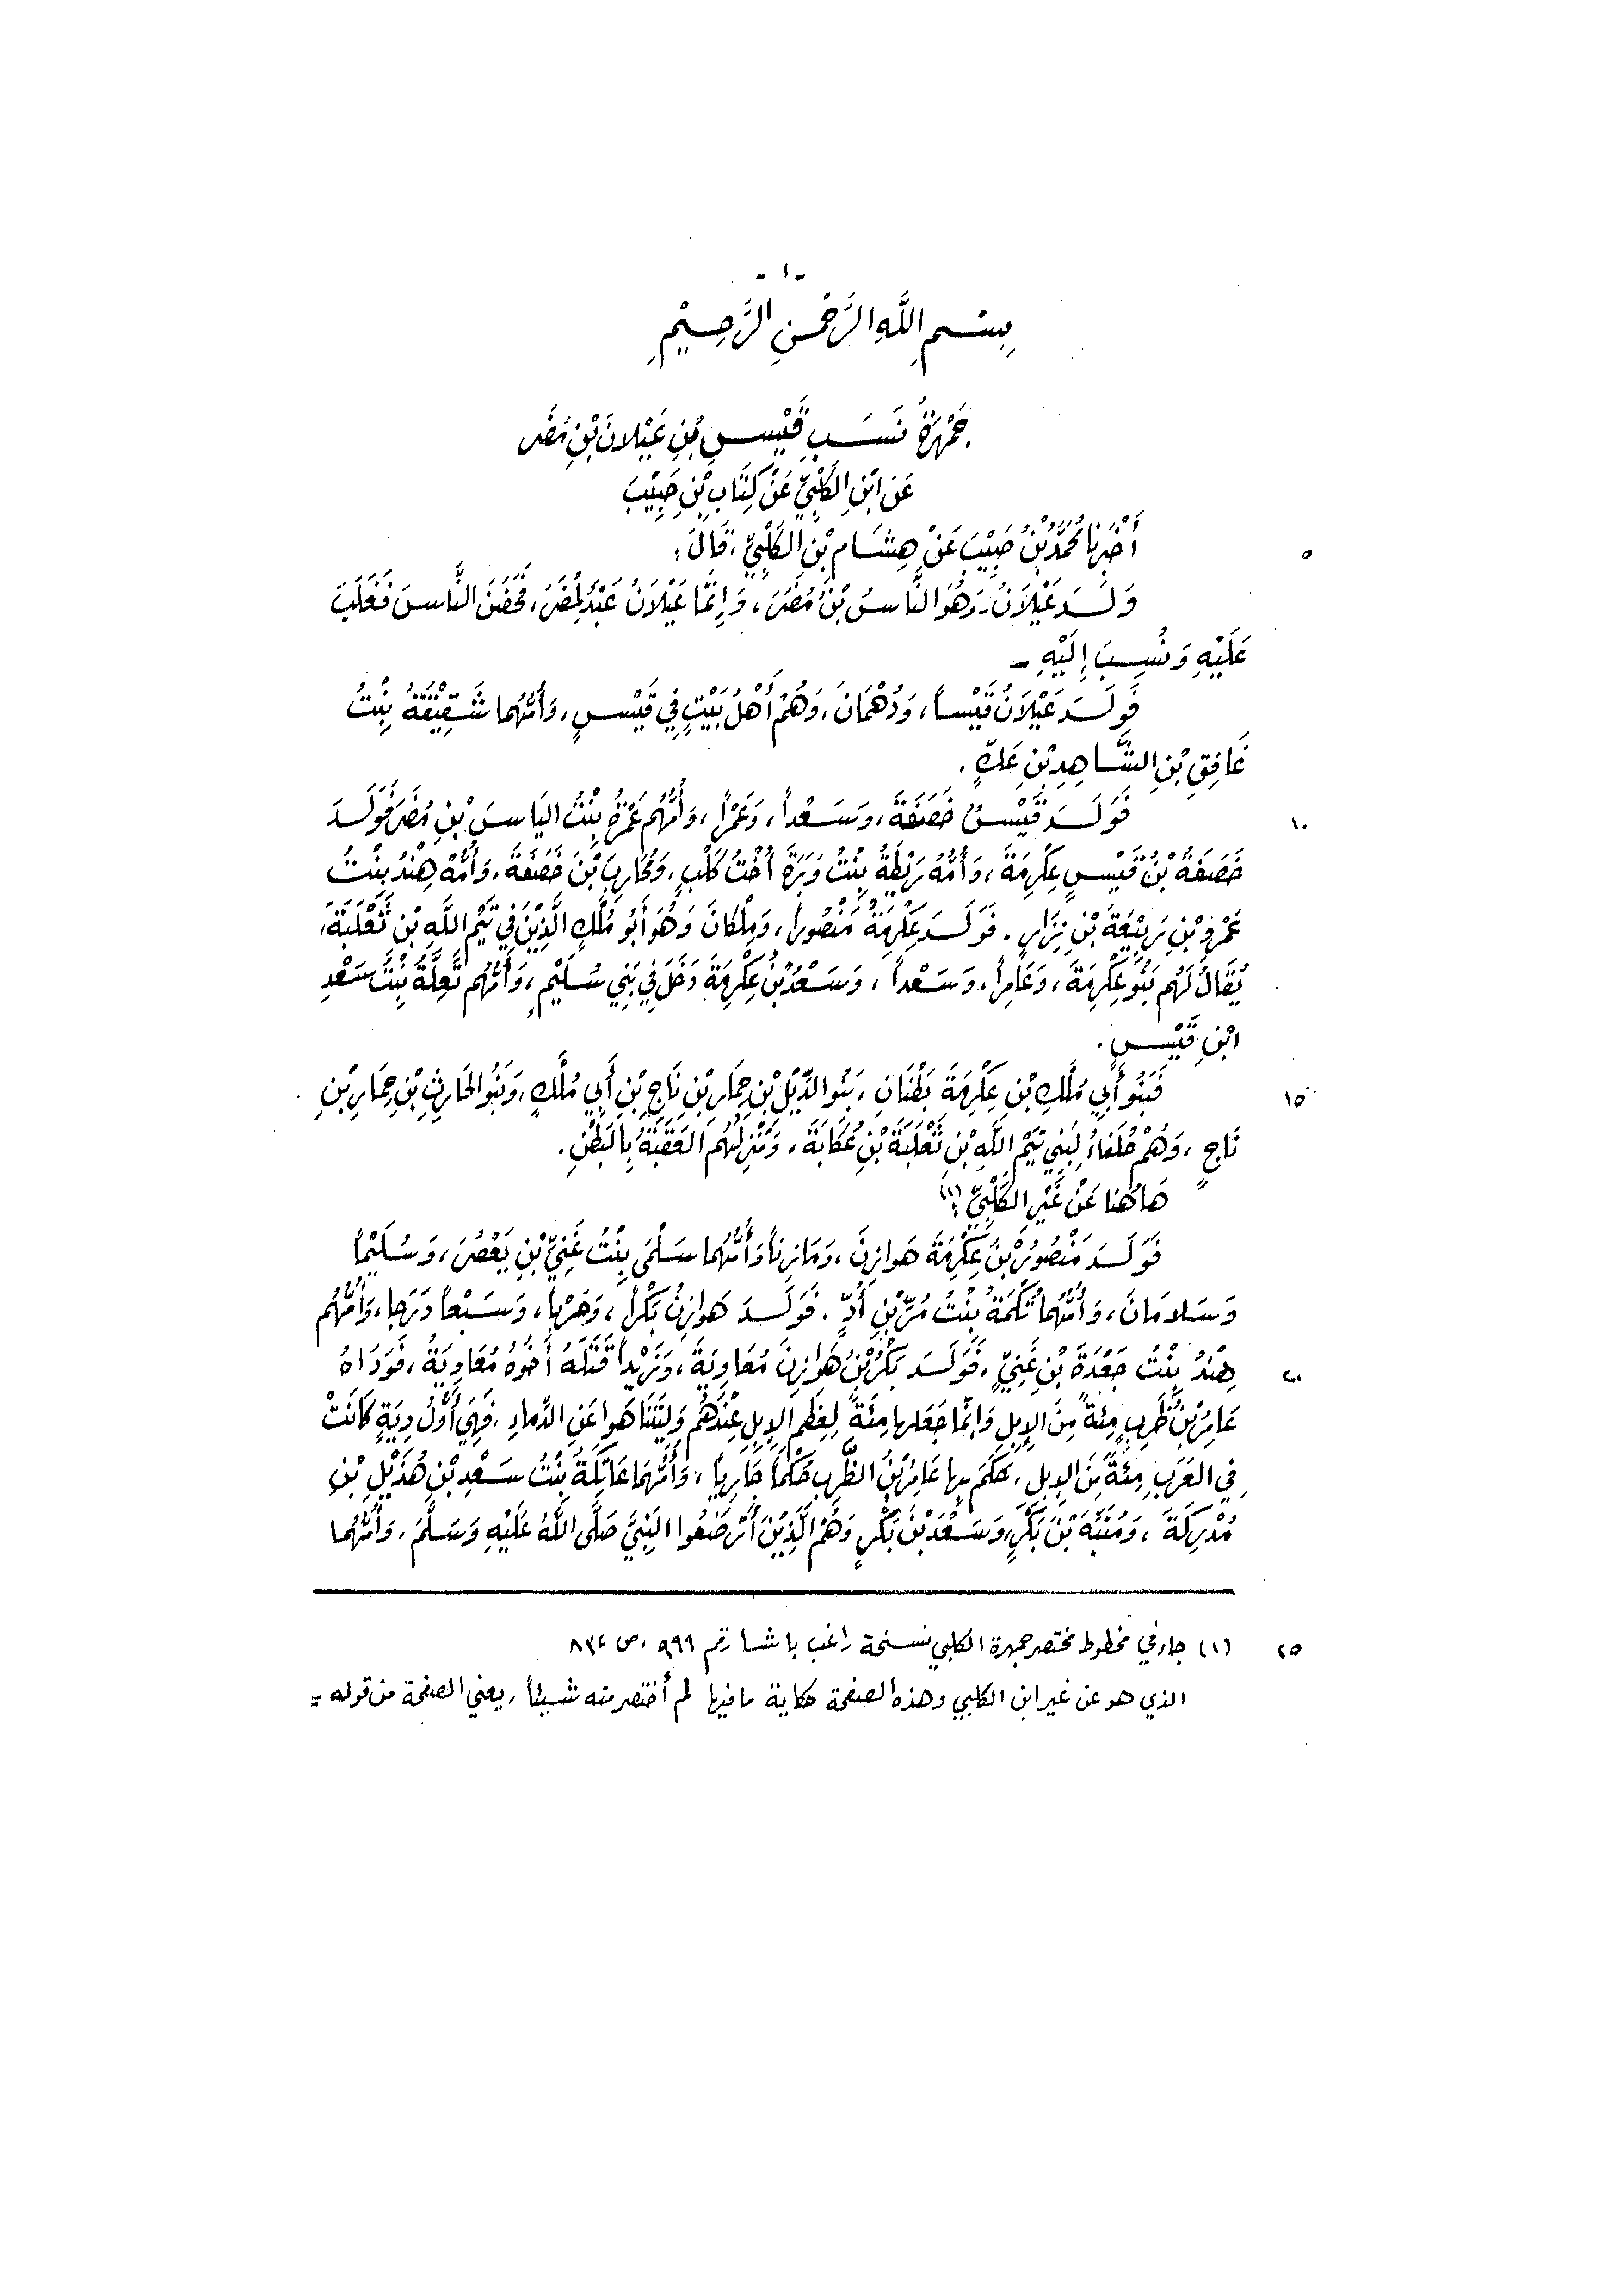 -١-
بِسْمِ اللَّهِ الرَّحْمٰنِ الرَّحِيْمِ
جَمْهَرَةُ نَسَبِ قَيْسِ بْنِ عَيْلانَ بْنِ مُضَر
عَن ابْنِ الكَلْبِيِّ عَنْ كِتَابِ بْنِ حَبِيْبَ
أَخْبَرَنا مُحَمَّدُ بْنُ حَبِيْبَ عَنْ هِشَامِ بْنِ الكَلْبِيِّ، قَالَ:
٥
وَلَدَ عَيْلَانُ - وَهُوَ النَّاسُ بْنُ مُضَرَ، وَإِنَّما عَيْلَانُ عَبْدٌ لِمُضَرَ، فَحَضَنَ النَّاسَ فَغَلَبَ
عَلَيْهِ وَنُسِبَ إِلَيْهِ -
فَوَلَدَ عَيْلَانُ قَيْساً، وَدُهْمَانَ، وَهُمْ أَهْلُ بَيْتٍ فِي قَيْسٍ، وَأُمُّهُما شَقِيْقَةُ بِنْتُ
غَافِقِ بْنِ الشَّاهِدِ بْنِ عَكٍّ.
فَوَلَدَ قَيْسُ خَصَفَةَ، وَسَعْداً، وَعَمْراً، وَأُمُّهُم عَمْرَةُ بِنْتُ اليَاسَ بْنِ مُضَرَ فَوَلَدَ
١٠
خَصَفَةُ بْنُ قَيْسٍ عِكْرِمَةَ، وَأُمُّهُ رَيْطَةُ بِنْتُ وَبَرَةَ أُخْتُ كَلْبٍ، وَمُحَارِبَ بْنَ خَصَفَةَ، وَأُمُّهُ هِنْدُ بِنْتُ
عَمْرِو بْنِ رَبِيْعَةَ بْنِ نِزَارٍ. فَوَلَدَ عِكْرِمَةُ مَنْصُوراً، وَمِلْكَانَ وَهُوَ أَبُو مُلْكٍ الَّذِيْنَ فِي تَيْمِ اللَّهِ بْنِ ثَعْلَبَةَ،
يُقَالُ لَهُم بَنُو عِكْرِمَةَ، وَعَامِراً، وَسَعْداً، وَسَعْدُ بْنُ عِكْرِمَةَ دَخَلَ فِي بَنِي سُلَيْمٍ، وَأُمُّهُم تَعِلَّةُ بِنْتُ سَعْدِ
ابْنِ قَيْسٍ.
فَبَنُو أَبِي مُلْكِ بْنِ عِكْرِمَةَ بَطْنَانِ، بَنُو الدِّيْلِ بْنِ حِمَارِ بْنِ نَاجِ بْنِ أَبِي مُلْكٍ، وَبَنُو الحَارِثِ بْنِ حِمَارِ بْنِ
١٥
نَاجٍ، وَهُمْ حُلَفاءُ لِبَنِي تَيْمِ اللَّهِ بْنِ ثَعْلَبَةَ بْنِ عُكَابَةَ، وَمَنْزِلُهُم العَقَبَةُ بِالبَطْنِ.
هَاهُنا عَنْ غَيْرِ الكَلْبِيِّ:(١)
فَوَلَدَ مَنْصُورُ بْنُ عِكْرِمَةَ هَوازِنَ، وَمَازِناً وَأُمُّهُما سَلْمَى بِنْتُ غَنِيِّ بْنِ يَعْصُرَ، وَسُلَيْماً
وَسَلامَانَ، وَأُمُّهُما تُكْمَةُ بِنْتُ مُرِّ بْنِ أُدٍّ. فَوَلَدَ هَوازِنُ بَكْراً، وَحَرْباً، وَسَبْعاً دَرَجا، وَأُمُّهُم
هِنْدُ بِنْتُ جَعْدَةَ بْنِ غَنِيٍّ، فَوَلَدَ بَكْرُ بْنُ هَوازِنَ مُعَاوِيَةَ، وَزَيْداً قَتَلَهُ أَخُوهُ مُعَاوِيَةُ، فَوَدَاهُ
٢٠
عَامِرُ بْنُ ظَرِبٍ مِئَةً مِنَ الإِبِلِ وَإِنَّما جَعَلها مِئَةً لِعِظَمِ الإِبِلِ عِنْدَهُم وَلِيَتَنَاهَوا عَنِ الدِّماءِ، فَهِيَ أَوَّلُ دِيَةٍ كَانَتْ
فِي العَرَبِ مِئَةً مِنَ الإِبِلِ، حَكَمَ بِها عَامِرُ بْنُ الظَّرِبِ حُكْماً جَارِياً، وَأُمُّهُمَا عَاتِكَةُ بِنْتُ سَعْدِ بْنِ هُذَيْلِ بْنِ
مُدْرِكَةَ، وَمُنَبِّهَ بْنَ بَكْرٍ، وَسَعْدَ بْنَ بَكْرٍ وَهُمُ الَّذِيْنَ أَرْضَعُوا النَّبِيَّ صَلَّى اللَّهُ عَلَيْهِ وَسَلَّمَ، وَأُمُّهُما
(١) جاء في مخطوط مختصر جمهرة الكلبي نسخة راغب باشا رقم ٩٩٩، ص ٨٣٤
٢٥
الذي هو عن غير ابن الكلبي وهذه الصفحة حكاية ما فيها لم أختصر منه شيئاً، يعني الصفحة من قوله =